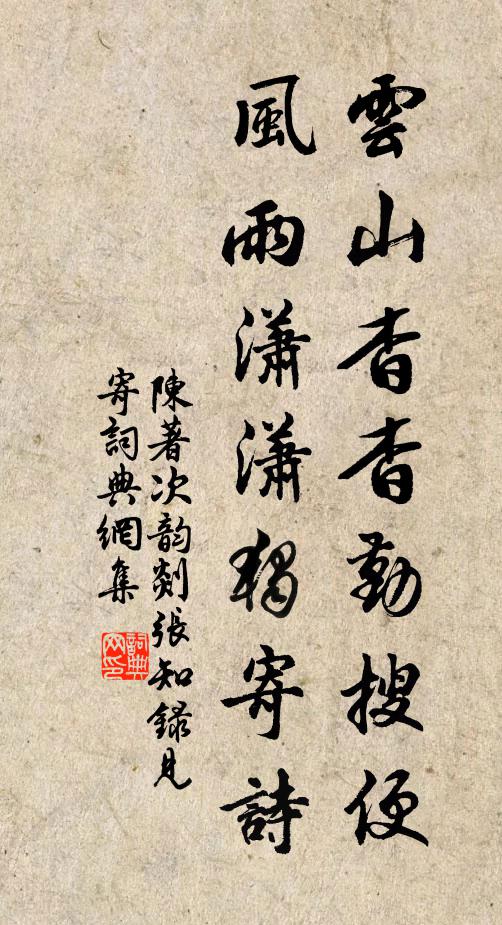 雲山杳杳勤搜便
風雨瀟瀟獨寄詩
陳著次韵剡張知錄見
寄詞典網集
詞典網印